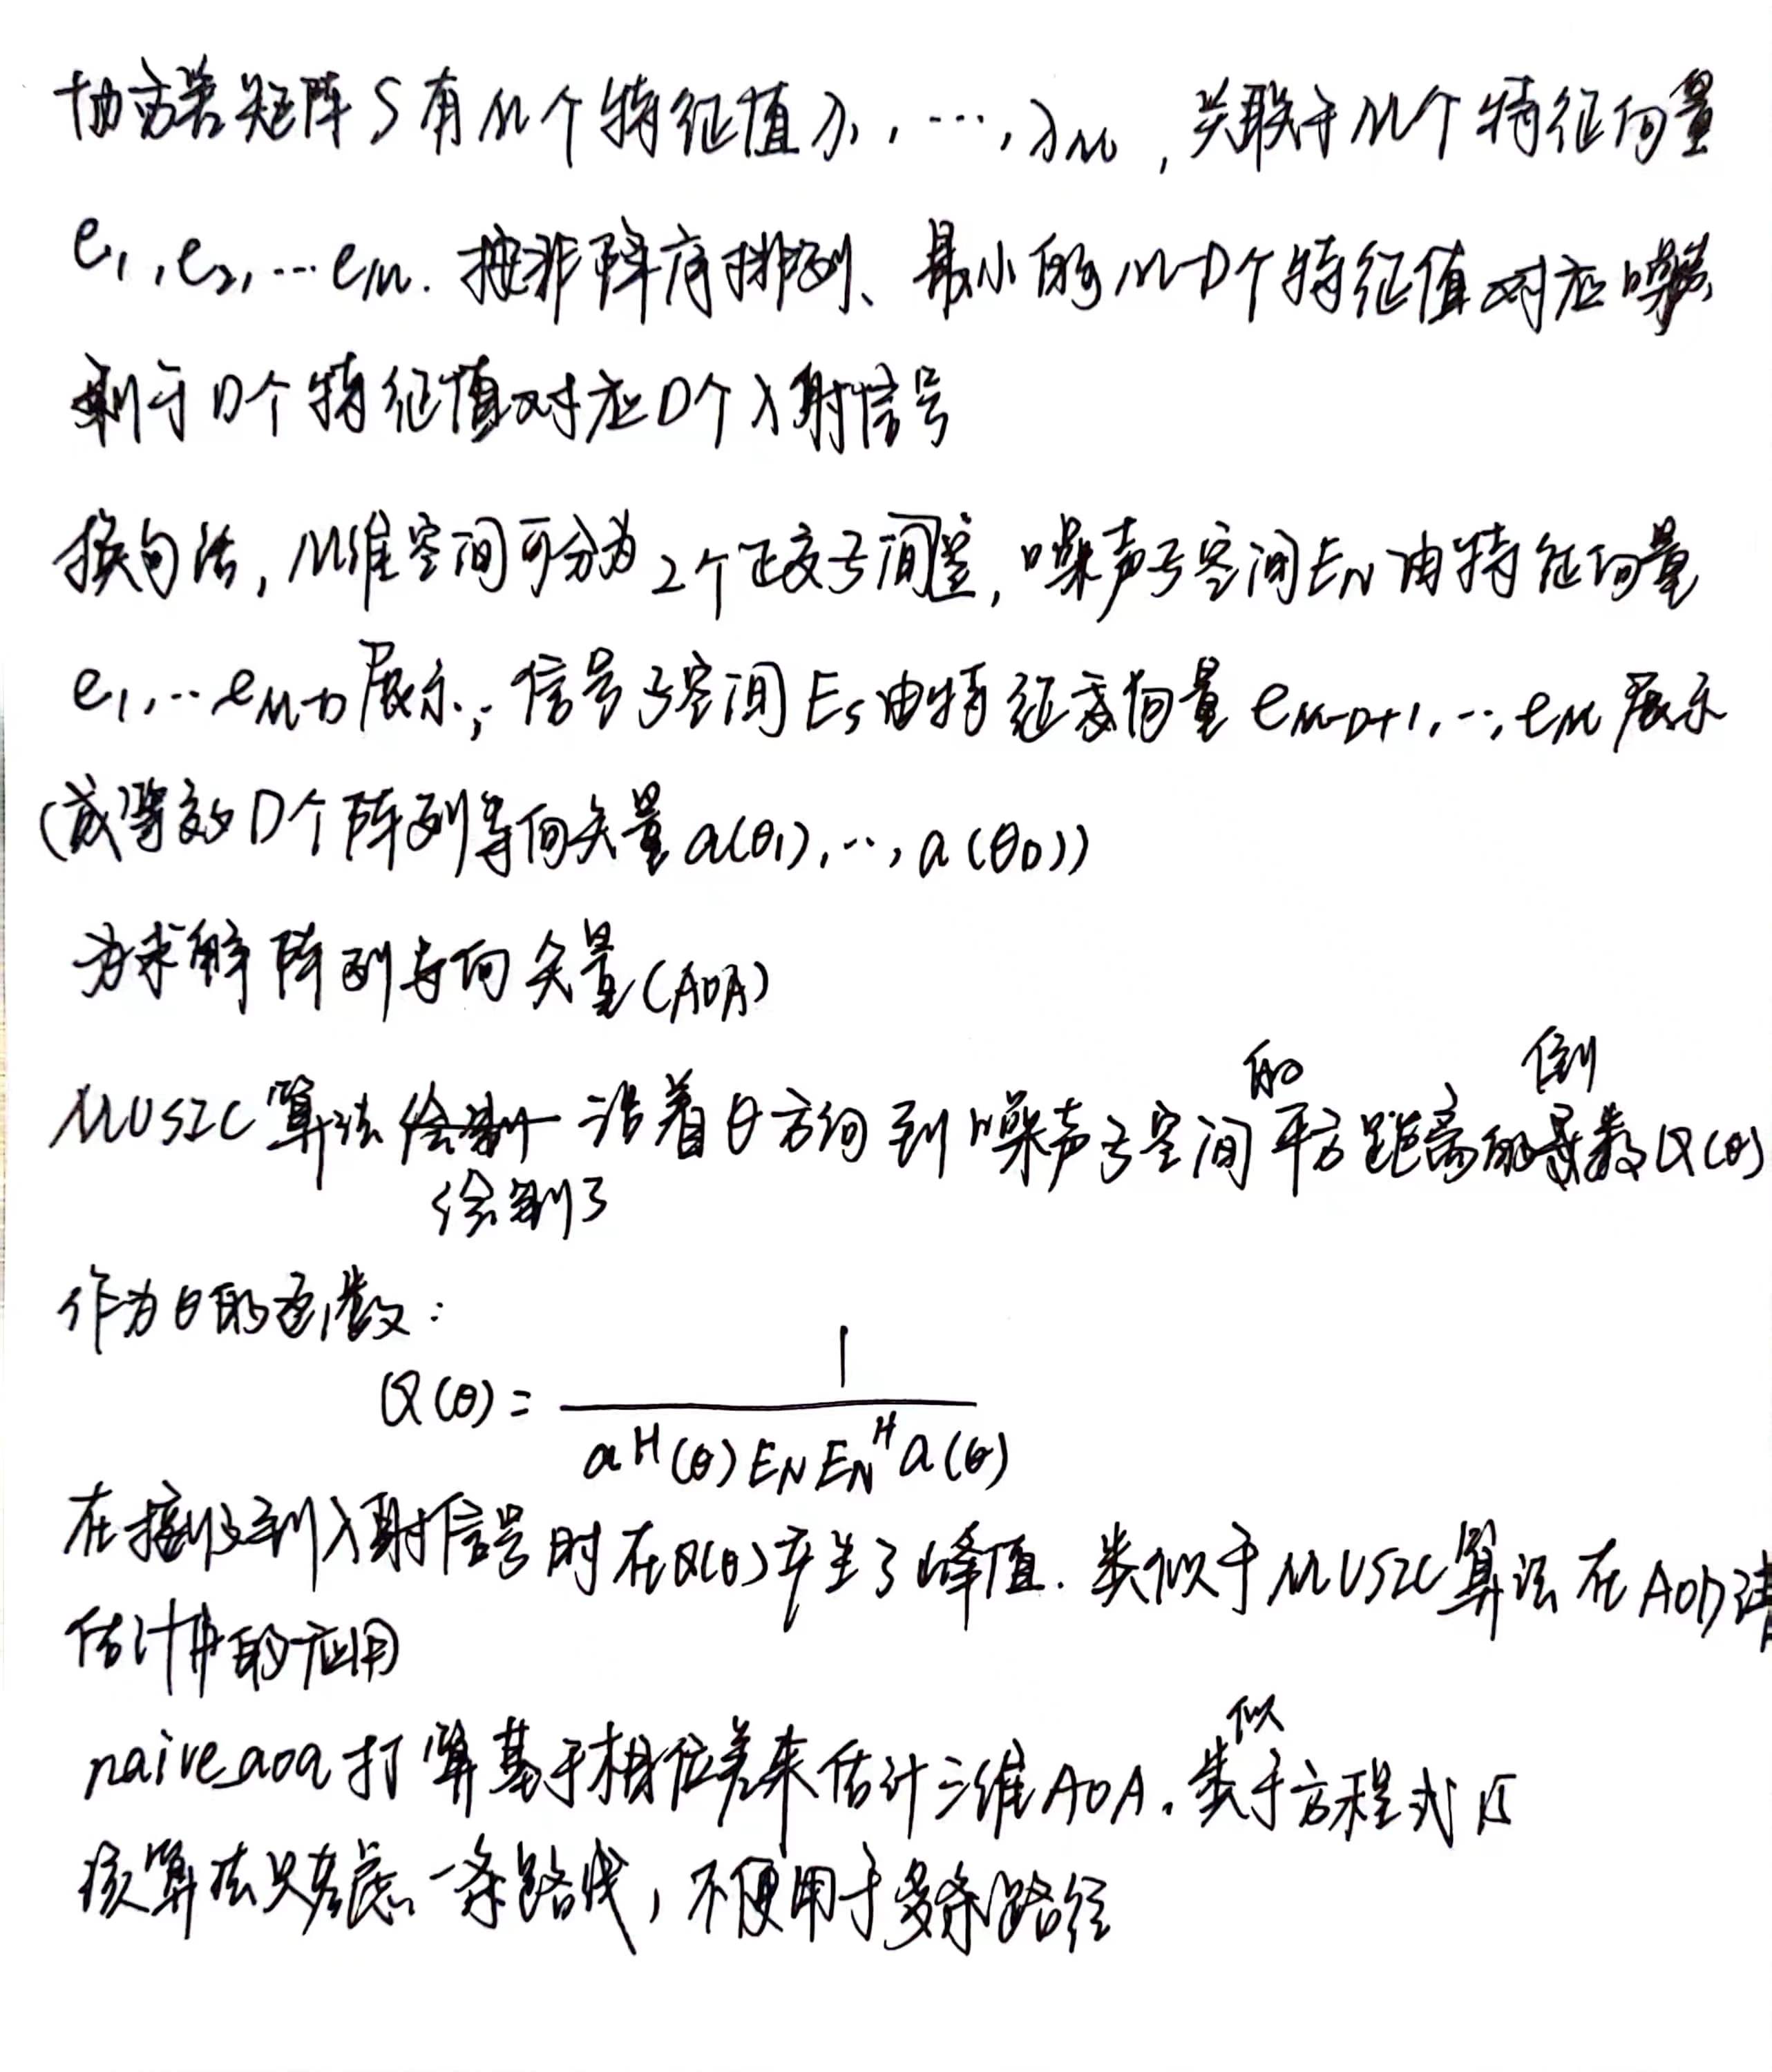 协方差矩阵S有M个特征值λ₁,…,λM,关联于M个特征向量
e₁,e₂,…eM.按非降序排列、最小的M-D个特征值对应噪
剩于D个特征值对应D个入射信号
换句话,M维空间可分为2个正交子间空,噪声子空间EN由特征向量
e₁,…eM-D展示;信号子空间Es由特征向量eM-D+1,…,eM展示
(或等效D个阵列导向矢量a(θ₁),…,a(θD))
为求解阵列导向矢量(AOA)
MUSIC算法绘制了沿着θ方向到噪声子空间的平方距离的倒数Q(θ)
作为θ的函数:
Q(θ)= 1 / aᴴ(θ)ENENᴴa(θ)
在接收到入射信号时在Q(θ)产生了峰值.类似于MUSIC算法在AOD谱
估计中的应用
naive_aoa打算基于相位差来估计二维AOA.类似于方程式15
该算法只考虑一条路线,不使用于多条路径